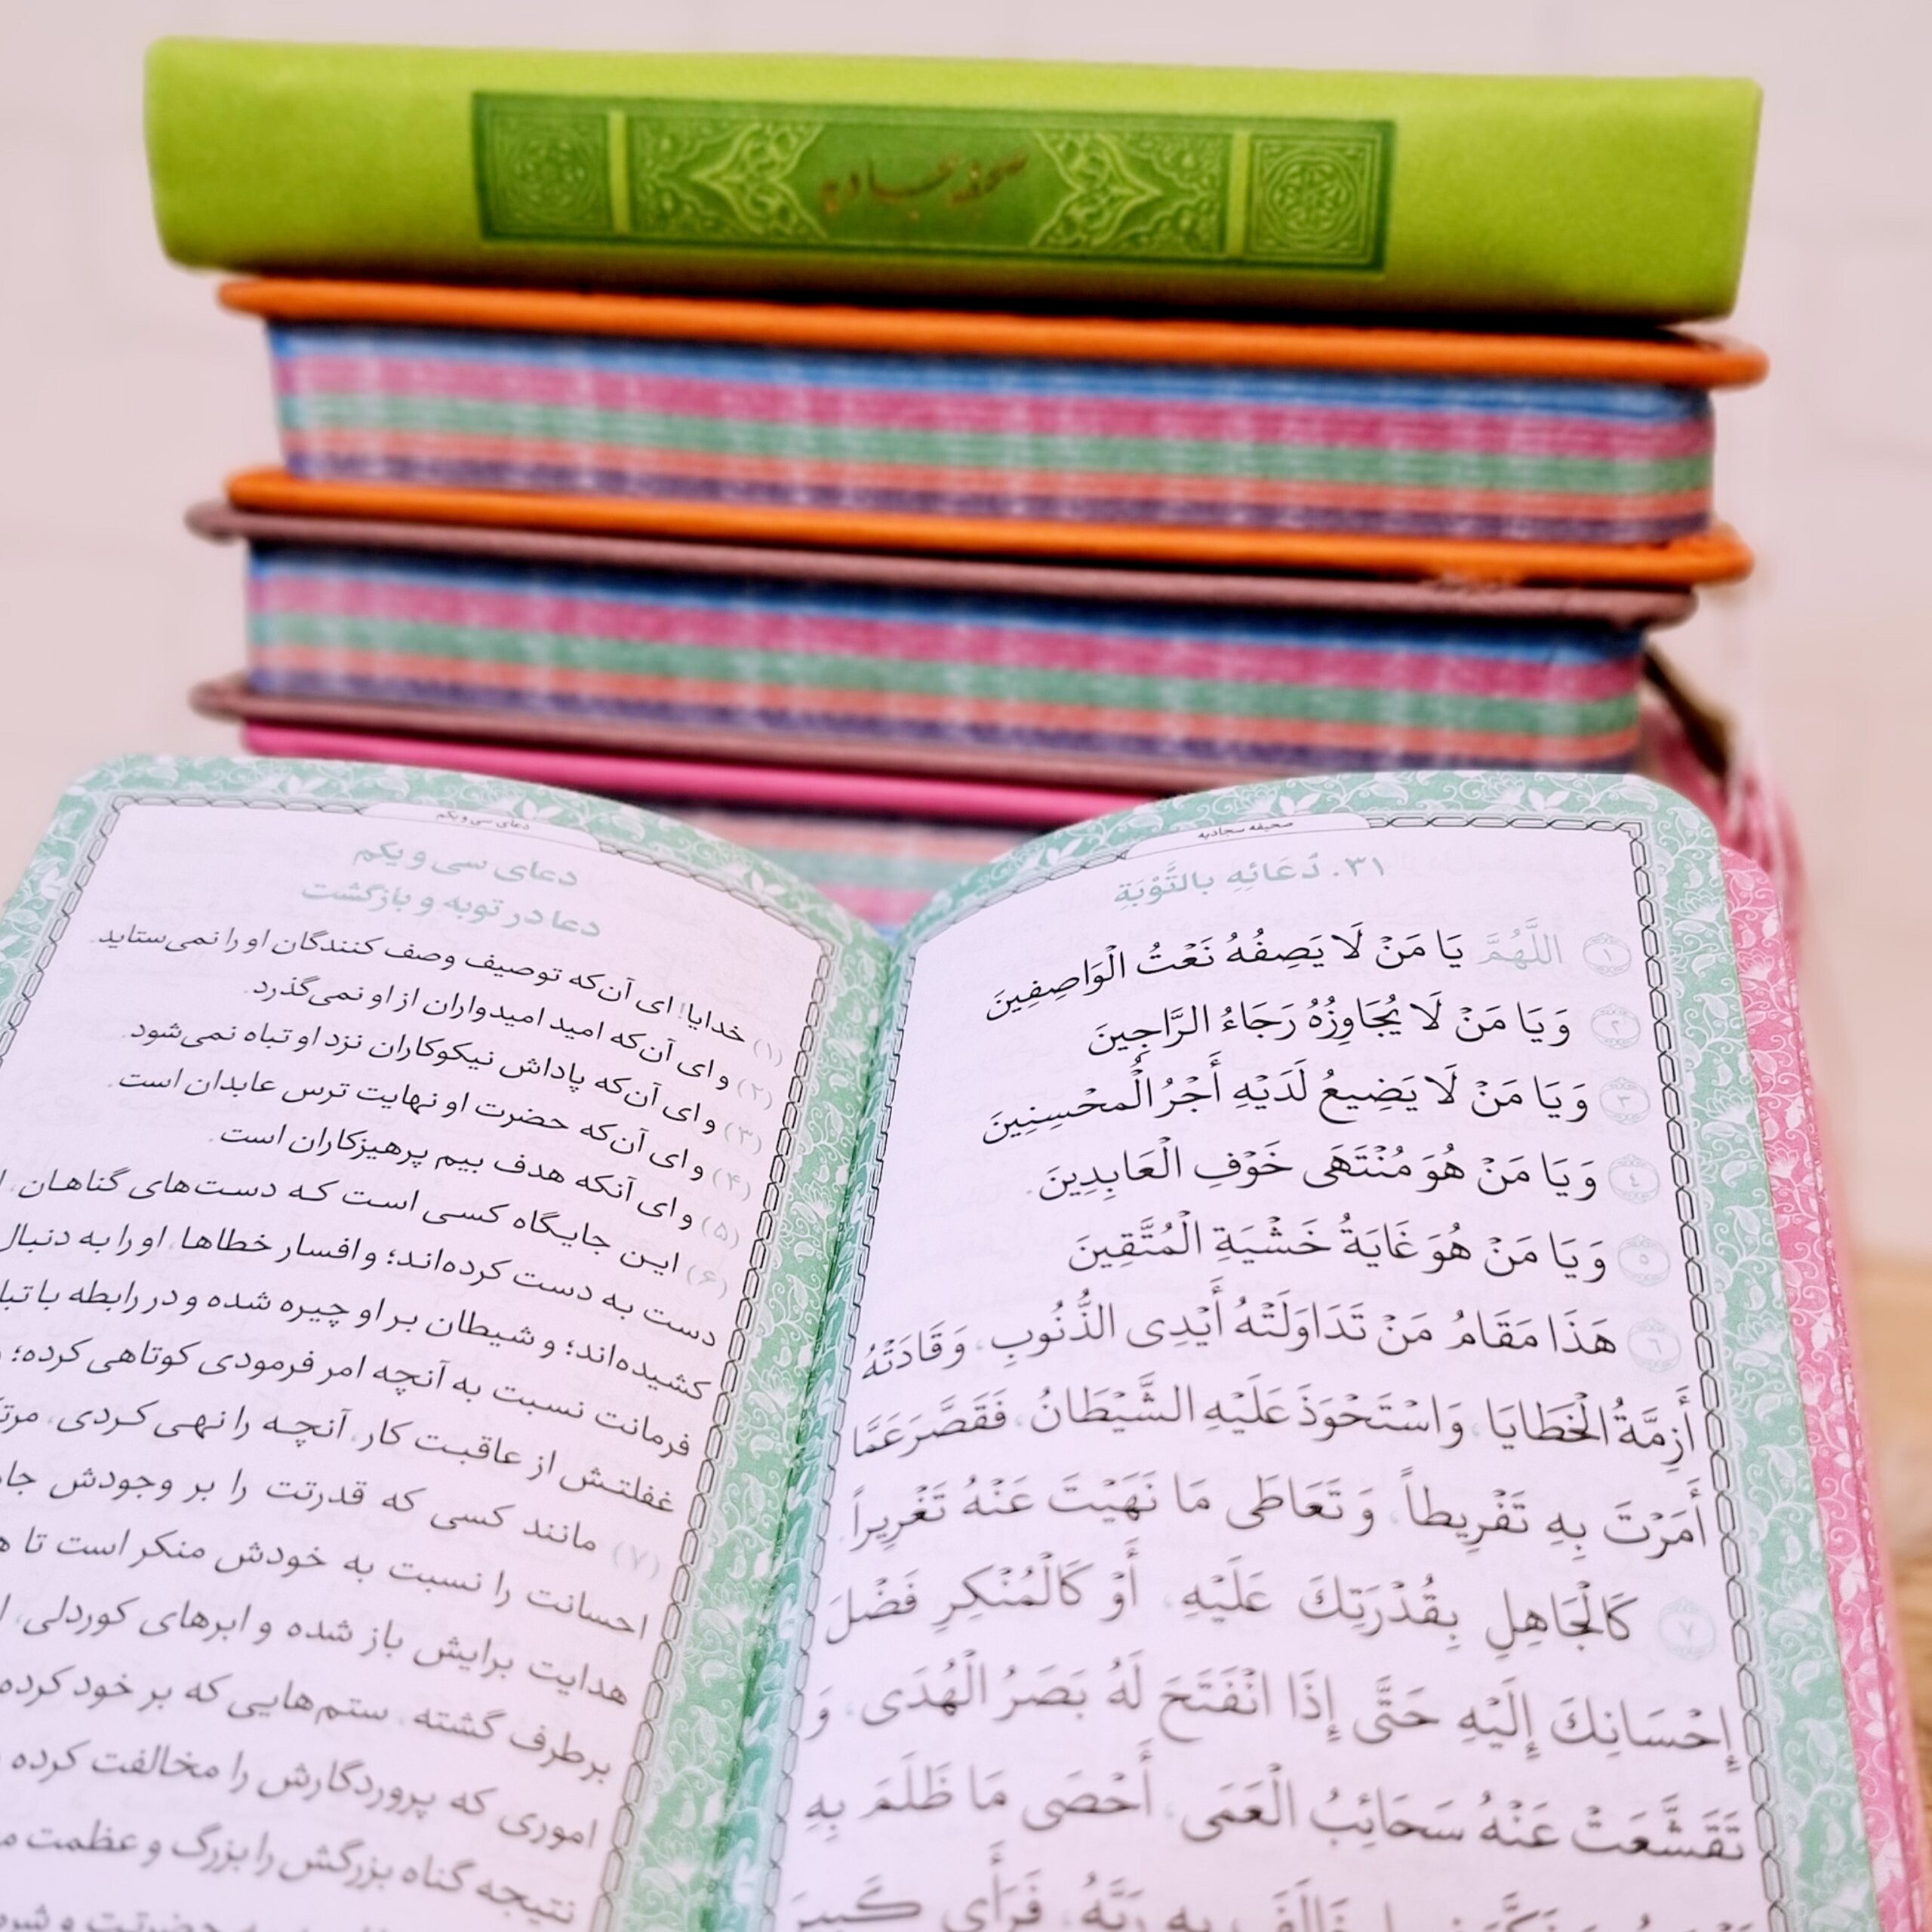 صحیفه سجادیه
صحیفه سجادیه
٣١. دُعَائِهِ بِالتَّوْبَةِ
١ اللَّهُمَّ يَا مَنْ لَا يَصِفُهُ نَعْتُ الْوَاصِفِينَ
٢ وَيَا مَنْ لَا يُجَاوِزُهُ رَجَاءُ الرَّاجِينَ
٣ وَيَا مَنْ لَا يَضِيعُ لَدَيْهِ أَجْرُ الْمُحْسِنِينَ
٤ وَيَا مَنْ هُوَ مُنْتَهَى خَوْفِ الْعَابِدِينَ.
٥ وَيَا مَنْ هُوَ غَايَةُ خَشْيَةِ الْمُتَّقِينَ
٦ هَذَا مَقَامُ مَنْ تَدَاوَلَتْهُ أَيْدِى الذُّنُوبِ، وَقَادَتْهُ
أَزِمَّةُ الْخَطَايَا، وَاسْتَحْوَذَ عَلَيْهِ الشَّيْطَانُ، فَقَصَّرَ عَمَّا
أَمَرْتَ بِهِ تَفْرِيطاً، وَ تَعَاطَى مَا نَهَيْتَ عَنْهُ تَغْرِيراً.
٧ كَالْجَاهِلِ بِقُدْرَتِكَ عَلَيْهِ، أَوْ كَالْمُنْكِرِ فَضْلَ
إِحْسَانِكَ إِلَيْهِ حَتَّى إِذَا انْفَتَحَ لَهُ بَصَرُ الْهُدَى، وَ
تَقَشَّعَتْ عَنْهُ سَحَائِبُ الْعَمَى، أَحْصَى مَا ظَلَمَ بِهِ
خَالَفَ بِهِ رَبَّهُ، فَرَأَى كَبِيرَ
دعای سی و یکم
دعای سی و یکم
دعا در توبه و بازگشت
(۱) خدایا! ای آن‌که توصیف وصف کنندگان او را نمی‌ستاید.
(۲) و ای آن‌که امید امیدواران از او نمی‌گذرد.
(۳) و ای آن‌که پاداش نیکوکاران نزد او تباه نمی‌شود.
(۴) و ای آن‌که حضرت او نهایت ترس عابدان است.
(۵) و ای آنکه هدف بیم پرهیزکاران است.
(۶) این جایگاه کسی است که دست‌های گناهان،
دست به دست کرده‌اند؛ و افسار خطاها، او را به دنبال
کشیده‌اند؛ و شیطان بر او چیره شده و در رابطه با
فرمانت نسبت به آنچه امر فرمودی کوتاهی کرده؛
غفلتش از عاقبت کار، آنچه را نهی کردی،
(۷) مانند کسی که قدرتت را بر وجودش
احسانت را نسبت به خودش منکر است تا
هدایت برایش باز شده و ابرهای کوردلی،
برطرف گشته، ستم‌هایی که بر خود کرده
اموری که پروردگارش را مخالفت کرده
نتیجه گناه بزرگش را بزرگ و عظمت